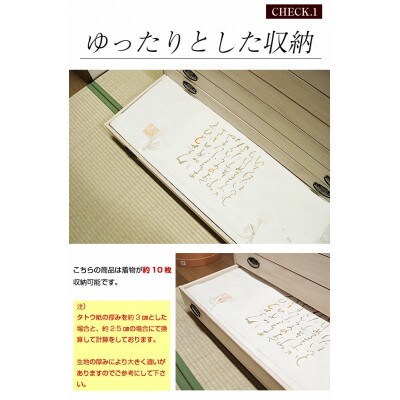 CHECK.1
ゆったりとした収納
こちらの商品は着物が約10枚
収納可能です。
注)
タトウ紙の厚みを約3㎝とした
場合と、約2.5㎝の場合にて換
算して計算をしております。
生地の厚みにより大きく違いが
ありますのでご参考にして下さ
い。